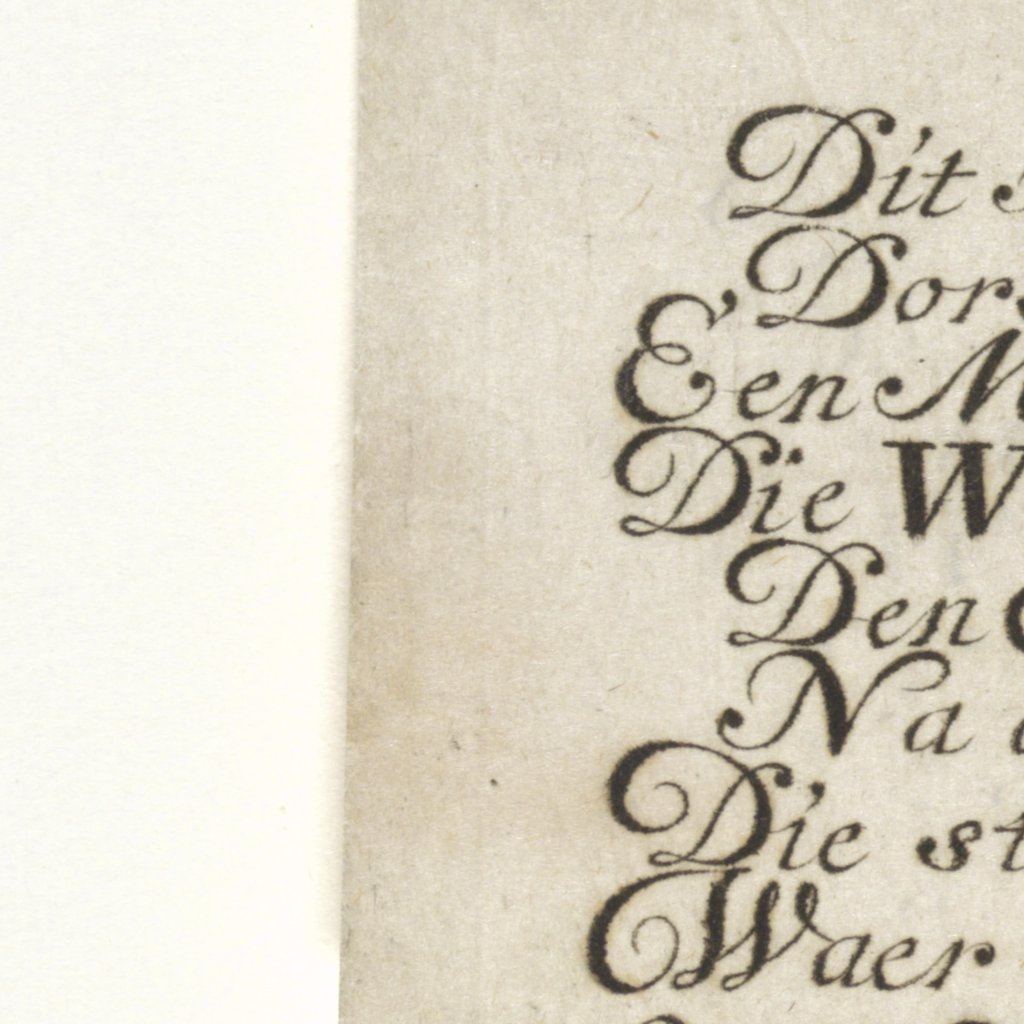 Dit
Dors
Een M
Die W
Den
Na
Die st
Waer